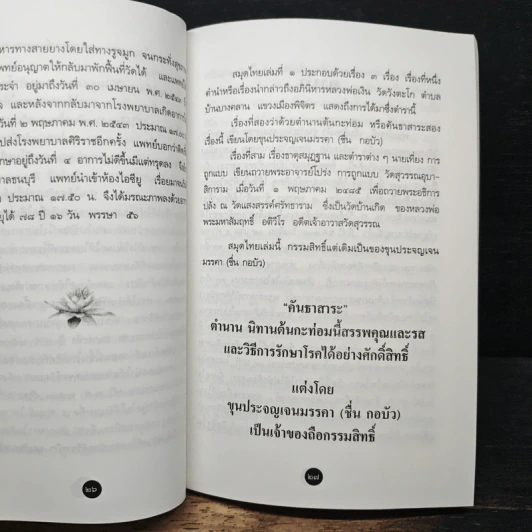 หารทางสายยางโดยใส่ทางรูจมูก จนกระทั่งสุข
พทย์อนุญาตให้กลับมาพักฟื้นที่วัดได้ และแพทย์
ระจำ อยู่มาถึงวันที่ ๓๐ เมษายน พ.ศ. ๒๕๔๓
ล และหลังจากกลับมาจากโรงพยาบาลเกิดอาการ
วันที่ ๒ พฤษภาคม พ.ศ. ๒๕๔๓ ประมาณ ๑๗.๐๐
ไปส่งโรงพยาบาลศิริราชอีกครั้ง แพทย์บอกว่าติด
รักษาอยู่ถึงวันที่ ๔ อาการไม่ดีขึ้นมีแต่ทรุดลง
าลธนบุรี แพทย์นำเข้าห้องไอซียู เรื่อยมาจน
ประมาณ ๑๗.๕๐ น. จึงได้มรณะภาพลงด้วย
ยุได้ ๗๘ ปี ๑๖ วัน พรรษา ๕๖
๒๖
สมุดไทยเล่มที่ ๑ ประกอบด้วยเรื่อง ๓ เรื่อง เรื่องที่หนึ่ง
คำนำหรือเรื่องนำกล่าวถึงอภินิหารหลวงพ่อเงิน วัดวังตะโก ตำบล
บ้านบางคลาน แขวงเมืองพิจิตร แสดงถึงการได้มาซึ่งตำรานี้
เรื่องที่สองว่าด้วยตำนานต้นกะท่อม หรือคันธาสาระสอง
เรื่องนี้ เขียนโดยขุนประจญเจนมรรคา (ชื่น กอบัว)
เรื่องที่สาม เรื่องธาตุสมุฏฐาน และตำราต่าง ๆ นายเที่ยง การ
ถูกแบบ เขียนถวายพระอาจารย์โปร่ง การถูกแบบ วัดสุวรรณอุบา-
สิการาม เมื่อวันที่ ๑ พฤษภาคม ๒๔๗๕ เพื่อถวายพระอธิการ
ปลัง ณ วัดแสงสรรค์ศรัทธาราม ซึ่งเป็นวัดบ้านเกิด ของหลวงพ่อ
พระมหาสัมฤทธิ์ อติวีโร อดีตเจ้าอาวาสวัดสุวรรณ
สมุดไทยเล่มนี้ กรรมสิทธิ์แต่เดิมเป็นของขุนประจญเจน
มรรคา (ชื่น กอบัว)
"คันธาสาระ"
ตำนาน นิทานต้นกะท่อมนี้สรรพคุณและรส
และวิธีการรักษาโรคได้อย่างศักดิ์สิทธิ์
แต่งโดย
ขุนประจญเจนมรรคา (ชื่น กอบัว)
เป็นเจ้าของถือกรรมสิทธิ์
๒๗